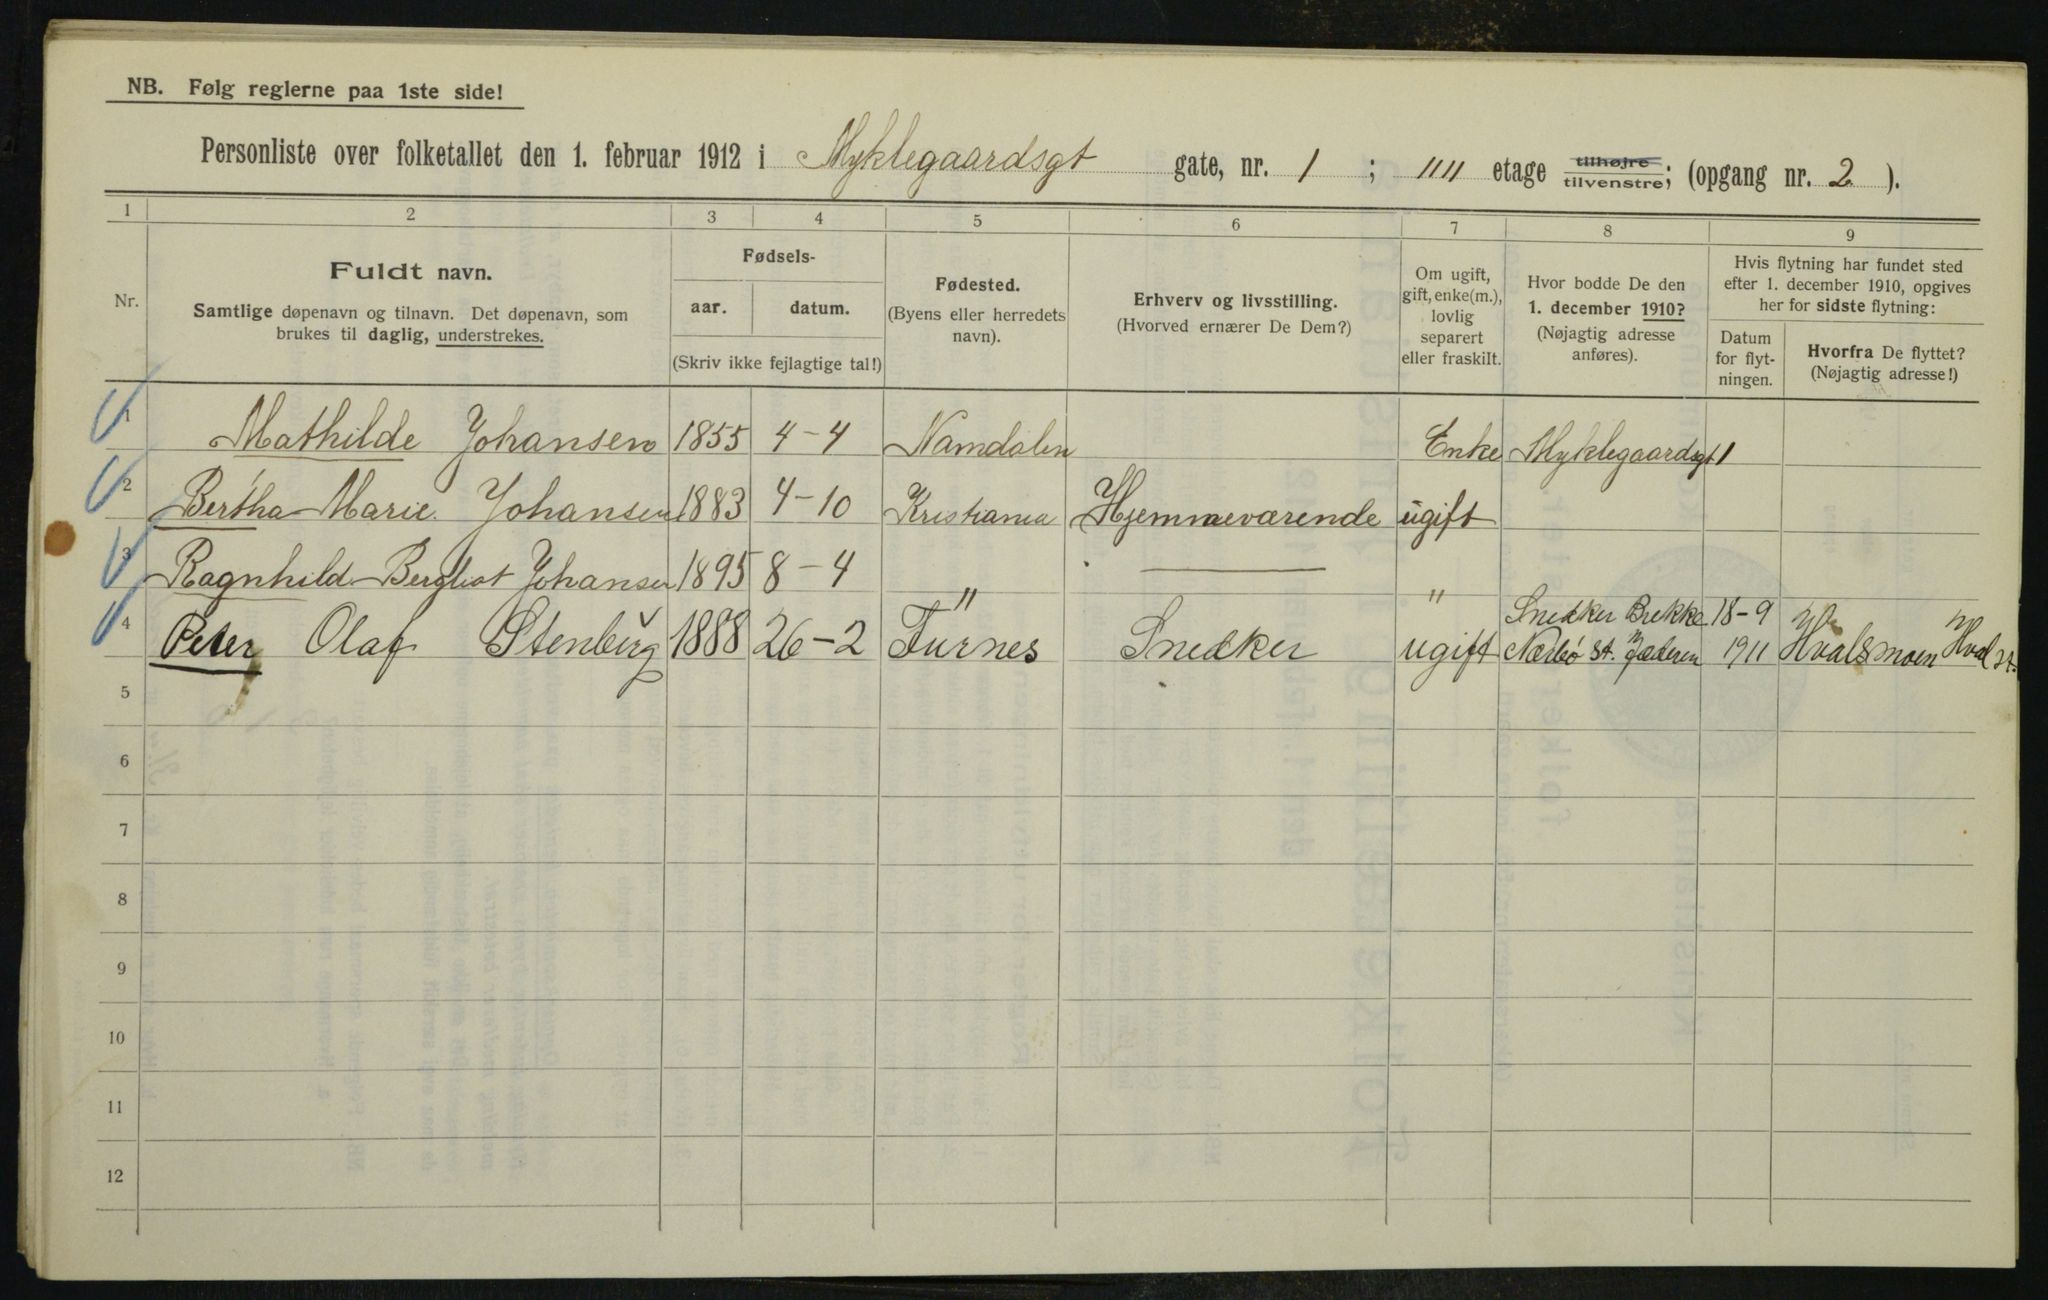 NB. Følg reglerne paa 1ste side!
Personliste over folketallet den 1. februar 1912 i Myklegaardsgt gate, nr. 1 ; IIII etage tilhøjre tilvenstre; (opgang nr. 2 ).
1 2 3 4 5 6 7 8 9
Nr.
Fuldt navn.
Samtlige døpenavn og tilnavn. Det døpenavn, som
brukes til daglig, understrekes.
Fødsels-
aar. datum.
(Skriv ikke fejlagtige tal!)
Fødested.
(Byens eller herredets
navn).
Erhverv og livsstilling.
(Hvorved ernærer De Dem?)
Om ugift,
gift, enke(m.),
lovlig
separert
eller fraskilt.
Hvor bodde De den
1. december 1910?
(Nøjagtig adresse
anføres).
Hvis flytning har fundet sted
efter 1. december 1910, opgives
her for sidste flytning:
Datum
for flyt-
ningen.
Hvorfra De flyttet?
(Nøjagtig adresse!)
1 Mathilde Johansen 1855 4-4 Namdalen Enke Myklegaardsgt 1
2 Bertha Marie Johansen 1883 4-10 Kristiania Hjemmeværende ugift
3 Ragnhild Bergliot Johansen 1895 8-4 " "
Snedker Brekke 18-9
4 Peter Olaf Stenberg 1888 26-2 Furnes Snedker ugift Nærbø St. Jæderen 1911 Hvalsmoen Hval st.
5
6
7
8
9
10
11
12